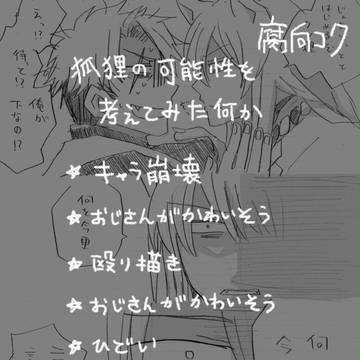 腐向コク
狐狸の可能性を
考えてみた何か
★ キャラ崩壊
★ おじさんがかわいそう
★ 殴り描き
★ おじさんがかわいそう
★ ひどい
えっ!?
待って!?
俺が
下なの!?
何を今更
今 何